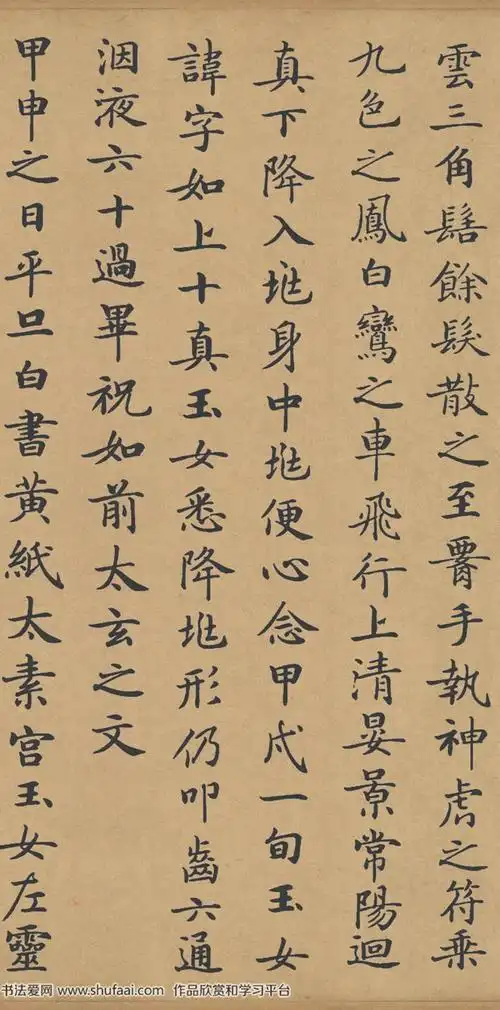 雲三角髻餘髮散之至䯒手執神虎之符乗
九色之鳳白鸞之車飛行上清晏景常陽迴
真下降入𡉙身中𡉙便心念甲戌一旬玉女
諱字如上十真玉女悉降𡉙形仍叩齒六通
洇液六十過畢祝如前太玄之文
甲申之日平旦白書黃紙太素宮玉女左靈
书法爱网 www.shufaai.com 作品欣赏和学习平台